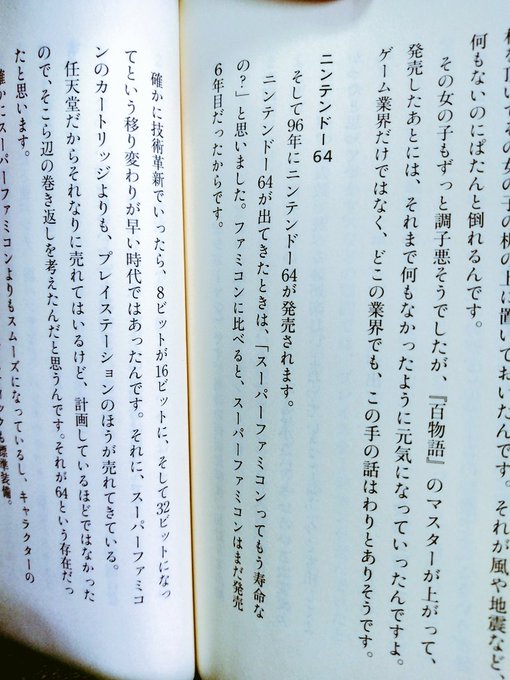 を頂いてその女の子の机の上に置いておいたんです。それが風や地震など、
何もないのにぱたんと倒れるんです。
その女の子もずっと調子悪そうでしたが、『百物語』のマスターが上がって、
発売したあとには、それまで何もなかったように元気になっていったんですよ。
ゲーム業界だけではなく、どこの業界でも、この手の話はわりとありそうです。
ニンテンドー64
そして96年にニンテンドー64が発売されます。
ニンテンドー64が出てきたときは、「スーパーファミコンってもう寿命な
の?」と思いました。ファミコンに比べると、スーパーファミコンはまだ発売
6年目だったからです。
確かに技術革新でいったら、8ビットが16ビットに、そして32ビットになっ
てという移り変わりが早い時代ではあったんです。それに、スーパーファミコ
ンのカートリッジよりも、プレイステーションのほうが売れてきている。
任天堂だからそれなりに売れてはいるけど、計画しているほどではなかった
ので、そこら辺の巻き返しを考えたんだと思うんです。それが64という存在だっ
たと思います。
確かにスーパーファミコンよりもスムーズになっているし、キャラクターの
標準装備。